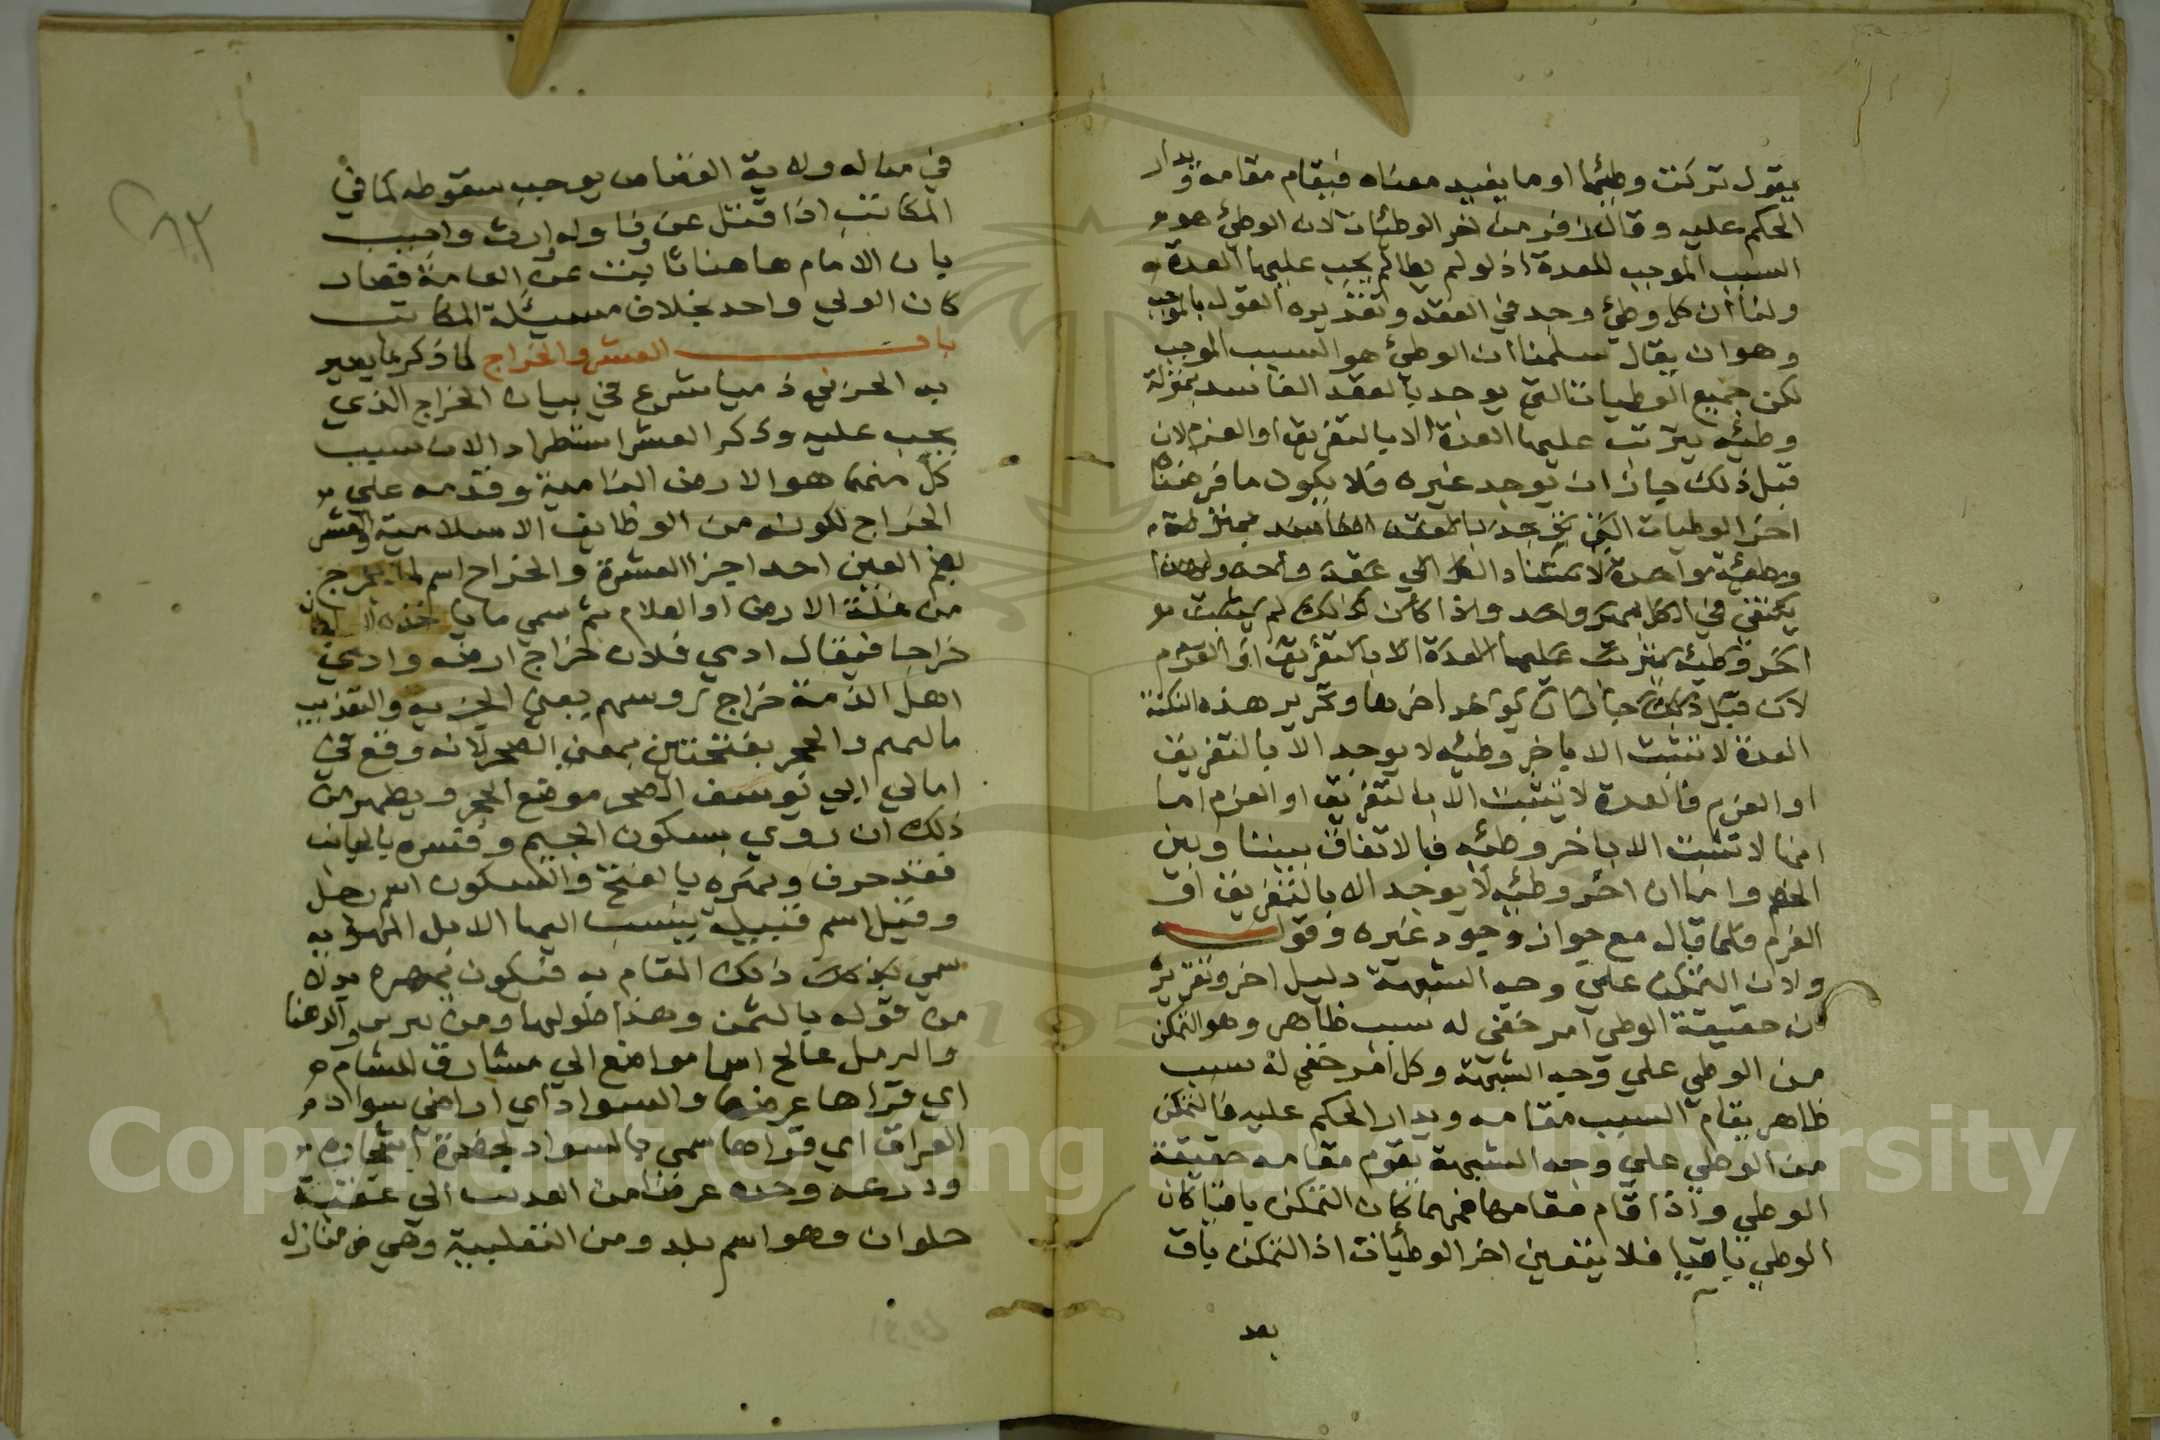 يقول تركت وطئها او ما يفيد معناه فيقام مقامه ويدار
الحكم عليه وقال زفر من اخر الوطئات لان الوطئ هو
السبب الموجب للعدة اذ لو لم يطالم يجب عليها العدة
ولنا ان كل وطئ وجد في العقد وتقديره القول بالموجب
وهو ان يقال سلمنا ان الوطئ هو السبب الموجب
لكن جميع الوطيات التي يوجد بالعقد الفاسد بمنزلة
وطئه يترتب عليها العدة الا بالتفريق او العزم لان
قبل ذلك جاز ان يوجد غيره فلا يكون ما فرضناه
اخر الوطيات التي توجد بالعقد الفاسد بمنزلة
وطئه واحدة لاستناد الكل الي عقد واحد ولهذا
يكتفي في الكل بمهر واحد واذا كان كذلك لم يثبت
اخر وطئه يترتب عليها العدة الا بالتفريق او العزم
لان قبل ذلك جاز ان يوجد اخرها وتحرير هذه النكتة
العدة لا تثبت الا باخر وطئه لا يوجد الا بالتفريق
او العزم فالعدة لا يثبت الا بالتفريق او العزم اما
انها لا تثبت الا باخر وطئه فبالاتفاق بيننا وبين
الخصم واما ان اخر وطئه لا يوجد الا بالتفريق او
العزم فلما قال مع جواز وجود غيره وقوله
ولان التمكن علي وجه الشبهة دليل اخر وتقريره
ان حقيقة الوطي امر خفي له سبب ظاهر وهو التمكن
من الوطي علي وجه الشبهة وكل امر خفي له سبب
ظاهر يقام السبب مقامه ويدار الحكم عليه فالتمكن
من الوطي علي وجه الشبهة يقوم مقامه حقيقة
الوطي واذا قام مقامها فمهما كان التمكن باقيا كان
الوطي باقيا فلا يتعين اخر الوطئات اذ التمكن باق
بعد
في ماله ولاية القصاص يوجب سقوطه كما في
المكاتب اذا قتل عن وفا وله وارث واجيب
بان الامام هاهنا نايب عن العامة فصار
كان الولي واحد بخلاف مسئلة المكاتب
باب العشر والخراج لما ذكر ما يصير
به الحربي ذميا شرع في بيان الخراج الذي
يجب عليه وذكر العشر استطرادا لان سبب
كل منهما هو الارض النامية وقدمه علي
الخراج لكونه من الوظايف الاسلامية والعشر
بضم العين احد اجزا العشرة والخراج اسم لما يخرج
من غلة الارض او الغلام ثم سمي ما ياخذه السلطان
خراجا فيقال ادي فلان خراج ارضه وادي
اهل الذمة خراج روسهم يعني الجزية والعذيب
ما لتميم والحجر بفتحتين بمعني الصخر لانه وقع في
امالي ابي يوسف الصخر موضع الحجر ويظهر من
ذلك ان روي بسكون الجيم وفسره بالجانب
فقد حرف ومهره بالفتح والسكون اسم رجل
وقيل اسم قبيلة ينسب اليها الابل المهرية
سمي بذلك ذلك المقام به فتكون بمهره بدلا
من قوله باليمن وهذا طولها ومن يبرين والدهنا
والرمل عالج اسما مواضع الي مشارق الشام
اي قراها عرضها والسواد اي اراضي سواد
العراق اي قراها سمي بالسواد لخضرة اشجاره
وزرعه وحده عرضا من العذيب الي عقبة
حلوان وهو اسم بلد ومن الثعلبية وهي من منازل